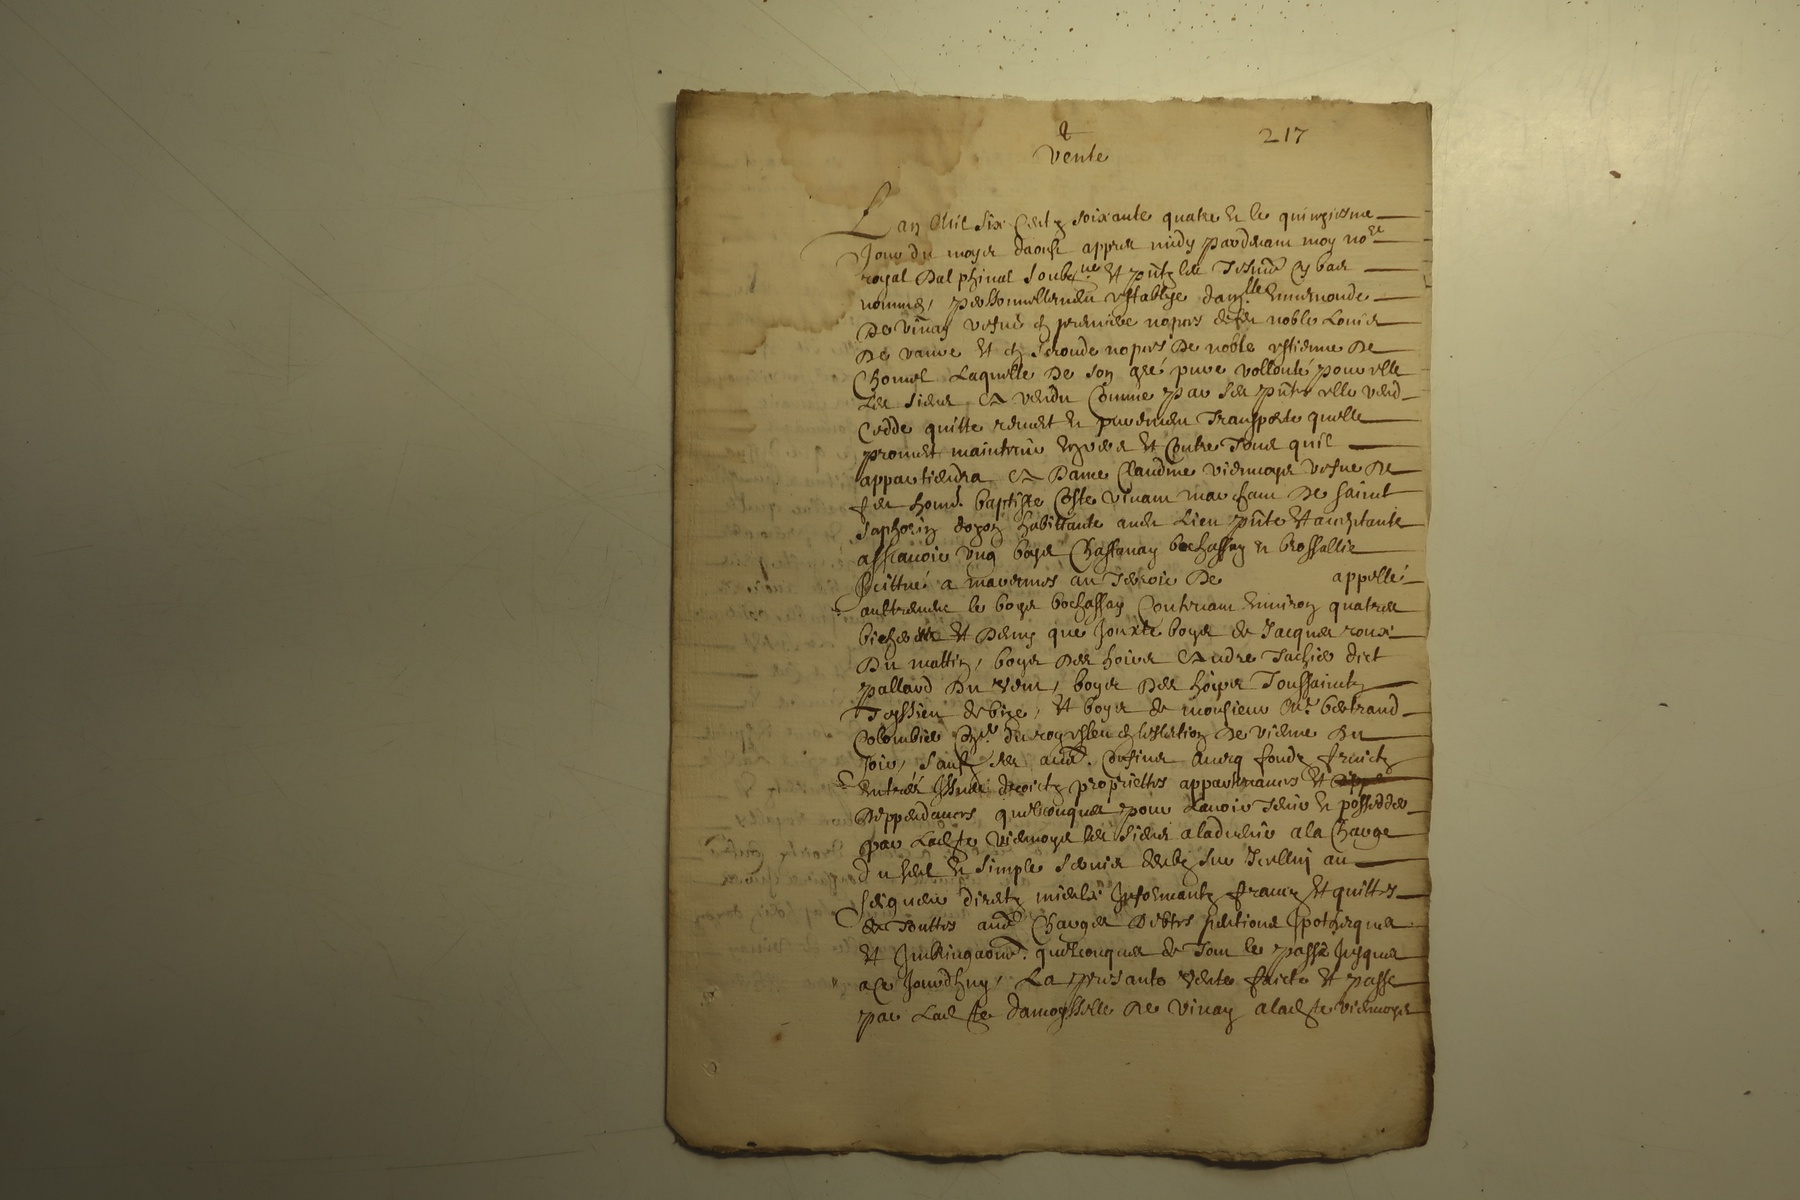 217
Vente
Lan Mil Six Centz soixante quatre et le quinziesme
Jour du moys daoust appres midy pardevant moy no.re
royal Dalphinal soubz.ne et p̃ntz les tesmo. cy bas
nommes, personnellement establye dam.lle Ennemonde
De Vinay vefve en premiere nopces de feu noble Louis
De et en seconde nopces De noble estienne De
Chomel Laquelle De son gré pure vollonté pour elle
Les siens A vendu Comme par ses p̃ntes elle vend
Cedde quitte remet et purement Transporte quelle
promet maintenir envers et Contre Tous quil
appartiendra A Dame Claudine viennoys vefve De
feu hon. baptiste Coste vivant marchant De sainct
Saphorin dozon habittante aud. Lieu p̃nte et acceptante
assavoir ung boys Chastanay bochassay et brossallie
scittué a mavernes au Terroir De appellé
aultrement le boys bochassay Contenant environ quatre
bicherées et Demy que Jouxte boys de Jacques roux
Du mattin, boys Des hoirs Andre Tachie dict
pallard Du vent, boys Des hoirs Toussainctz
Teyssieu de bize, et boys de monsieur M.e bertrand
Colombier du roy eslection De vienne Du
soir, sauf ses aud. Confins Avecq fondz fruictz
Entrées Issues droictz proprietes appartenances et
Deppendances quelconques pour Lavoir Tenir et posseder
par Lad.te Viennoys les siens aladvenir a la Charge
Du et simple servis deub sur Icelluy au
seigneur direct franc et quitte
de Touttes au. Charges Debtes pentions Ipotheques
et quelconques de Tout le passé Jusques
a ce Jourdhuy, La presante vente faicte et passe
par Lad.te damoyselle De Vinay a lad.te viennoys